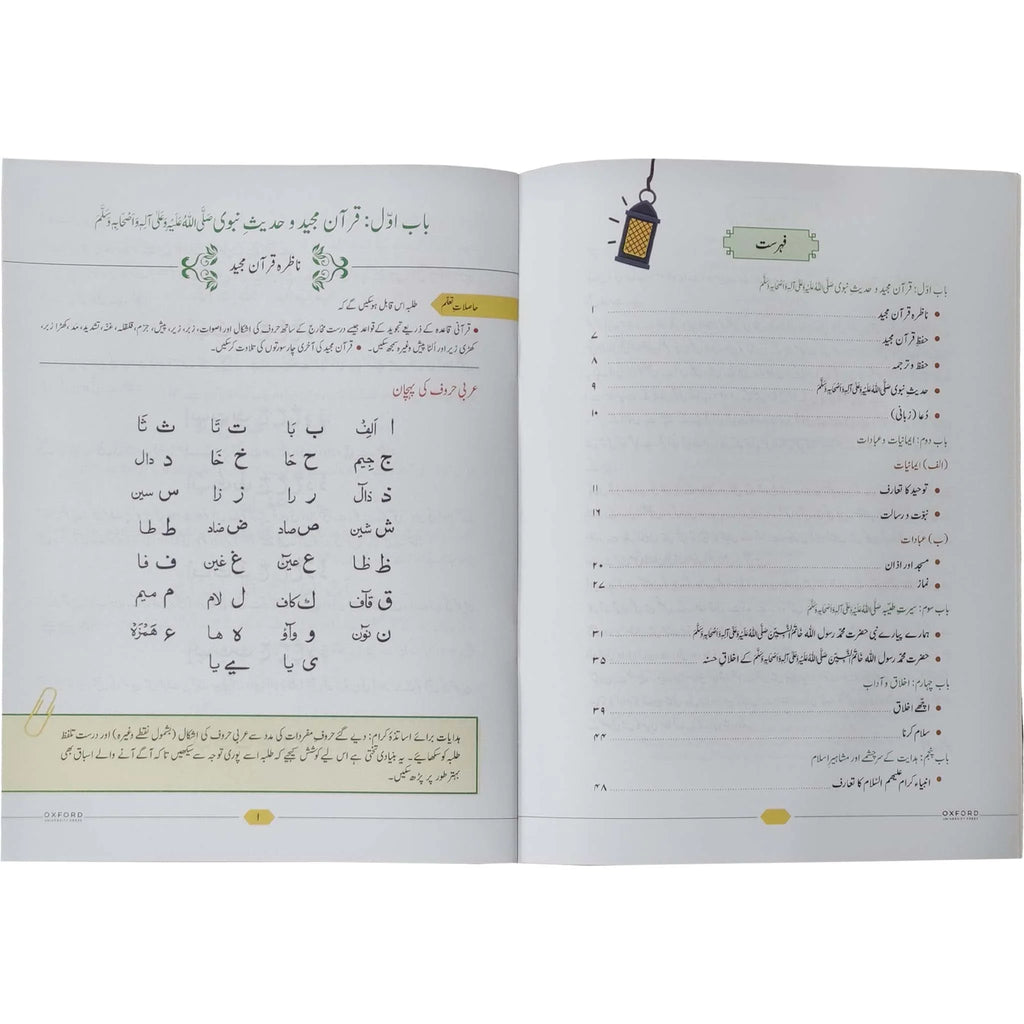 فہرست
باب اوّل: قرآن مجید و حدیثِ نبوی صَلَّی اللّٰہُ عَلَیْہِ وَعَلٰی آلِہٖ وَاَصْحَابِہٖ وَسَلَّمَ
ناظرہ قرآن مجید ۱
حفظِ قرآن مجید ۷
حفظ و ترجمہ ۸
حدیثِ نبوی صَلَّی اللّٰہُ عَلَیْہِ وَعَلٰی آلِہٖ وَاَصْحَابِہٖ وَسَلَّمَ ۹
دُعا (زبانی) ۱۰
باب دوم: ایمانیات و عبادات
(الف) ایمانیات
توحید کا تعارف ۱۱
نبوّت و رسالت ۱۶
(ب) عبادات
مسجد اور اذان ۲۰
نماز ۲۷
باب سوم: سیرتِ طیّبہ صَلَّی اللّٰہُ عَلَیْہِ وَعَلٰی آلِہٖ وَاَصْحَابِہٖ وَسَلَّمَ
ہمارے پیارے نبی حضرت محمّد رسول اللہ خَاتَمُ النَّبِیّٖنَ صَلَّی اللّٰہُ عَلَیْہِ وَعَلٰی آلِہٖ وَاَصْحَابِہٖ وَسَلَّمَ ۳۱
حضرت محمّد رسول اللہ خَاتَمُ النَّبِیّٖنَ صَلَّی اللّٰہُ عَلَیْہِ وَعَلٰی آلِہٖ وَاَصْحَابِہٖ وَسَلَّمَ کے اخلاقِ حسنہ ۳۵
باب چہارم: اخلاق و آداب
اچّھے اخلاق ۳۹
سلام کرنا ۴۴
باب پنجم: ہدایت کے سرچشمے اور مشاہیرِ اسلام
انبیاء کرام علیھم السّلام کا تعارف ۴۸
OXFORD
UNIVERSITY PRESS
باب اوّل: قرآن مجید و حدیثِ نبوی صَلَّی اللّٰہُ عَلَیْہِ وَعَلٰی آلِہٖ وَاَصْحَابِہٖ وَسَلَّمَ
ناظرہ قرآن مجید
حاصلاتِ تعلّم
طلبہ اس قابل ہوسکیں گے کہ
• قرآنی قاعدہ کے ذریعے تجوید کے قواعد جیسے درست مخارج کے ساتھ حروف کی اشکال اور اصوات، زبر، زیر، پیش، جزم، قلقلہ، غنّہ، تشدید، مد، کھڑا زبر،
کھڑی زیر اور اُلٹا پیش وغیرہ سمجھ سکیں۔ • قرآن مجید کی آخری چار سورتوں کی تلاوت کرسکیں۔
عربی حروف کی پہچان
ا اَلِفْ ب بَا ت تَا ث ثَا
ج جِیم ح حَا خ خَا د دال
ذ ذال ر را ز زا س سین
ش شین ص صاد ض ضاد ط طا
ظ ظا ع عین غ غین ف فا
ق قاف ك كاف ل لام م میم
ن نون و واو ہ ھا ء ھَمْزَہْ
ی یا ے یا
ہدایات برائے اساتذۂ کرام: دیے گئے حروفِ مفردات کی مدد سے عربی حروف کی اشکال (بشمول نقطے وغیرہ) اور درست تلفّظ
طلبہ کو سکھایئے۔ یہ بنیادی تختی ہے اس لیے کوشش کیجیے کہ طلبہ اسے پوری توجہ سے سیکھیں تاکہ آگے آنے والے اسباق بھی
بہتر طور پر پڑھ سکیں۔
OXFORD
UNIVERSITY PRESS
۱